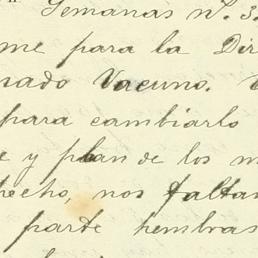 Semanas nº 3
me para la Dir
nado Vacuno.
para cambiarlo
e y plan de los m
hecho, nos faltan
parte hembras